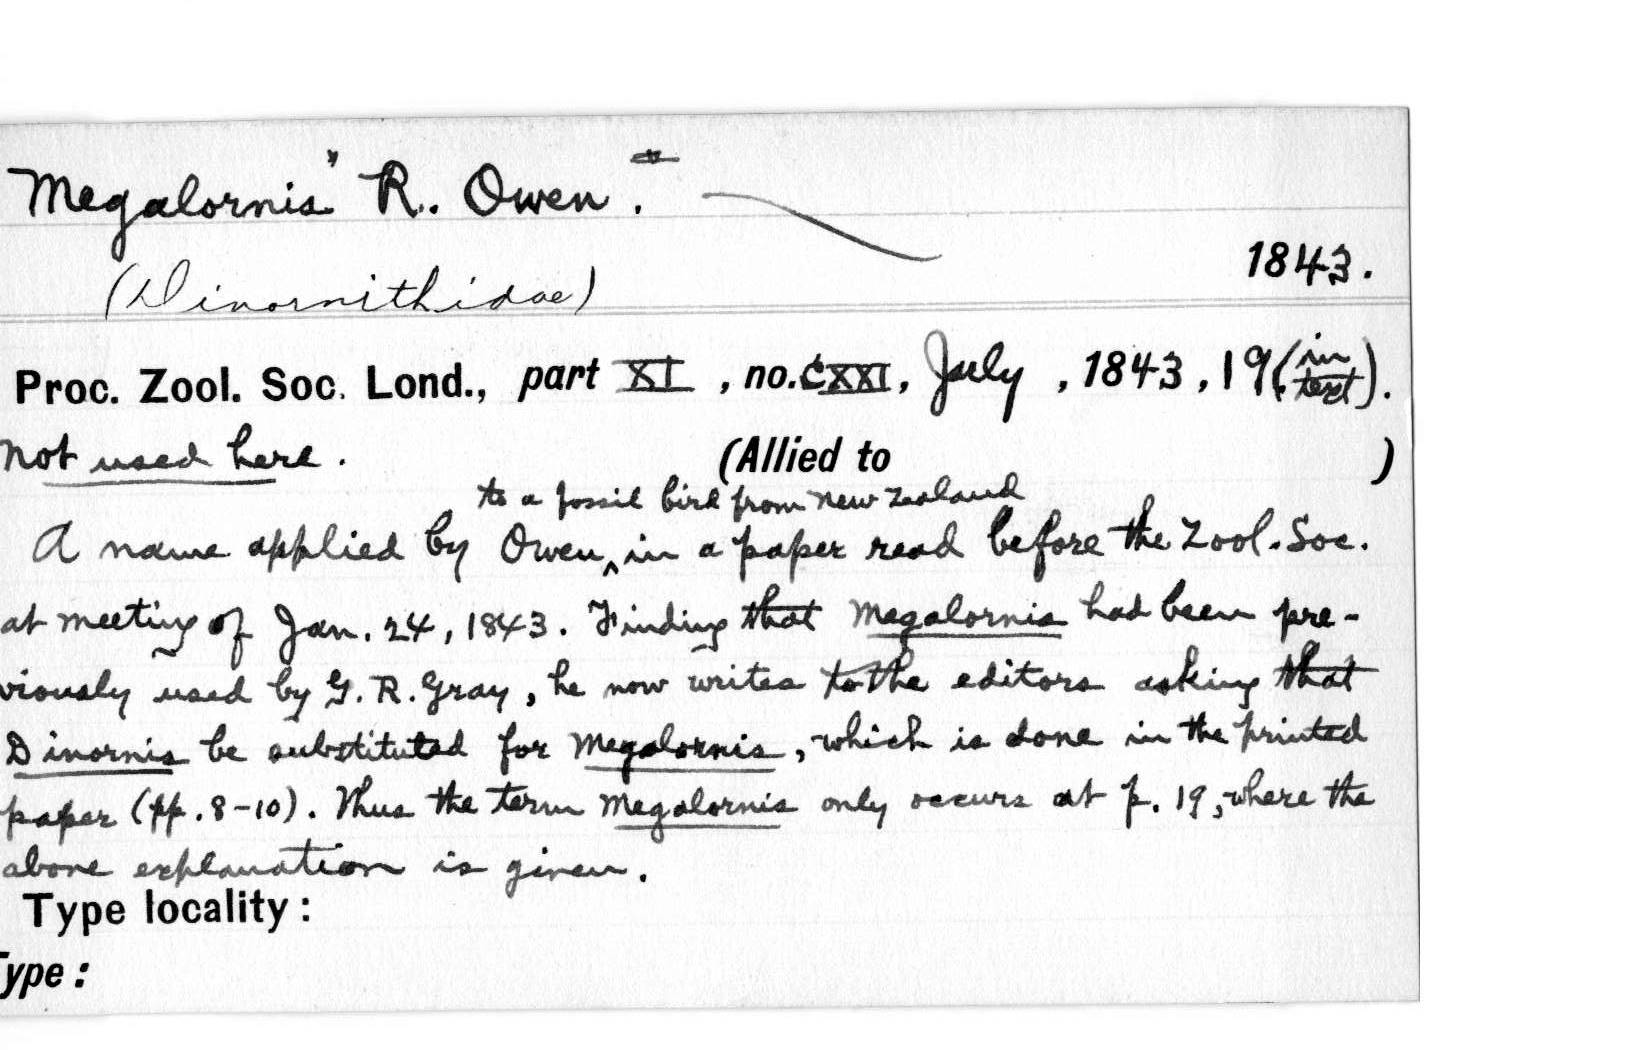 Megalornis" R. Owen.
1843.
(Dinornithidae)
Proc. Zool. Soc. Lond., part XI, no. CXXI, July, 1843, 19 (in text).
Not used here. (Allied to )
to a fossil bird from New Zealand
A name applied by Owen ^ in a paper read before the Zool. Soc.
at meeting of Jan. 24, 1843. Finding that Megalornis had been pre-
viously used by G. R. Gray, he now writes to the editors asking that
Dinornis be substituted for Megalornis, which is done in the printed
paper (pp. 8-10). Thus the term Megalornis only occurs at p. 19, where the
above explanation is given.
Type locality:
Type: